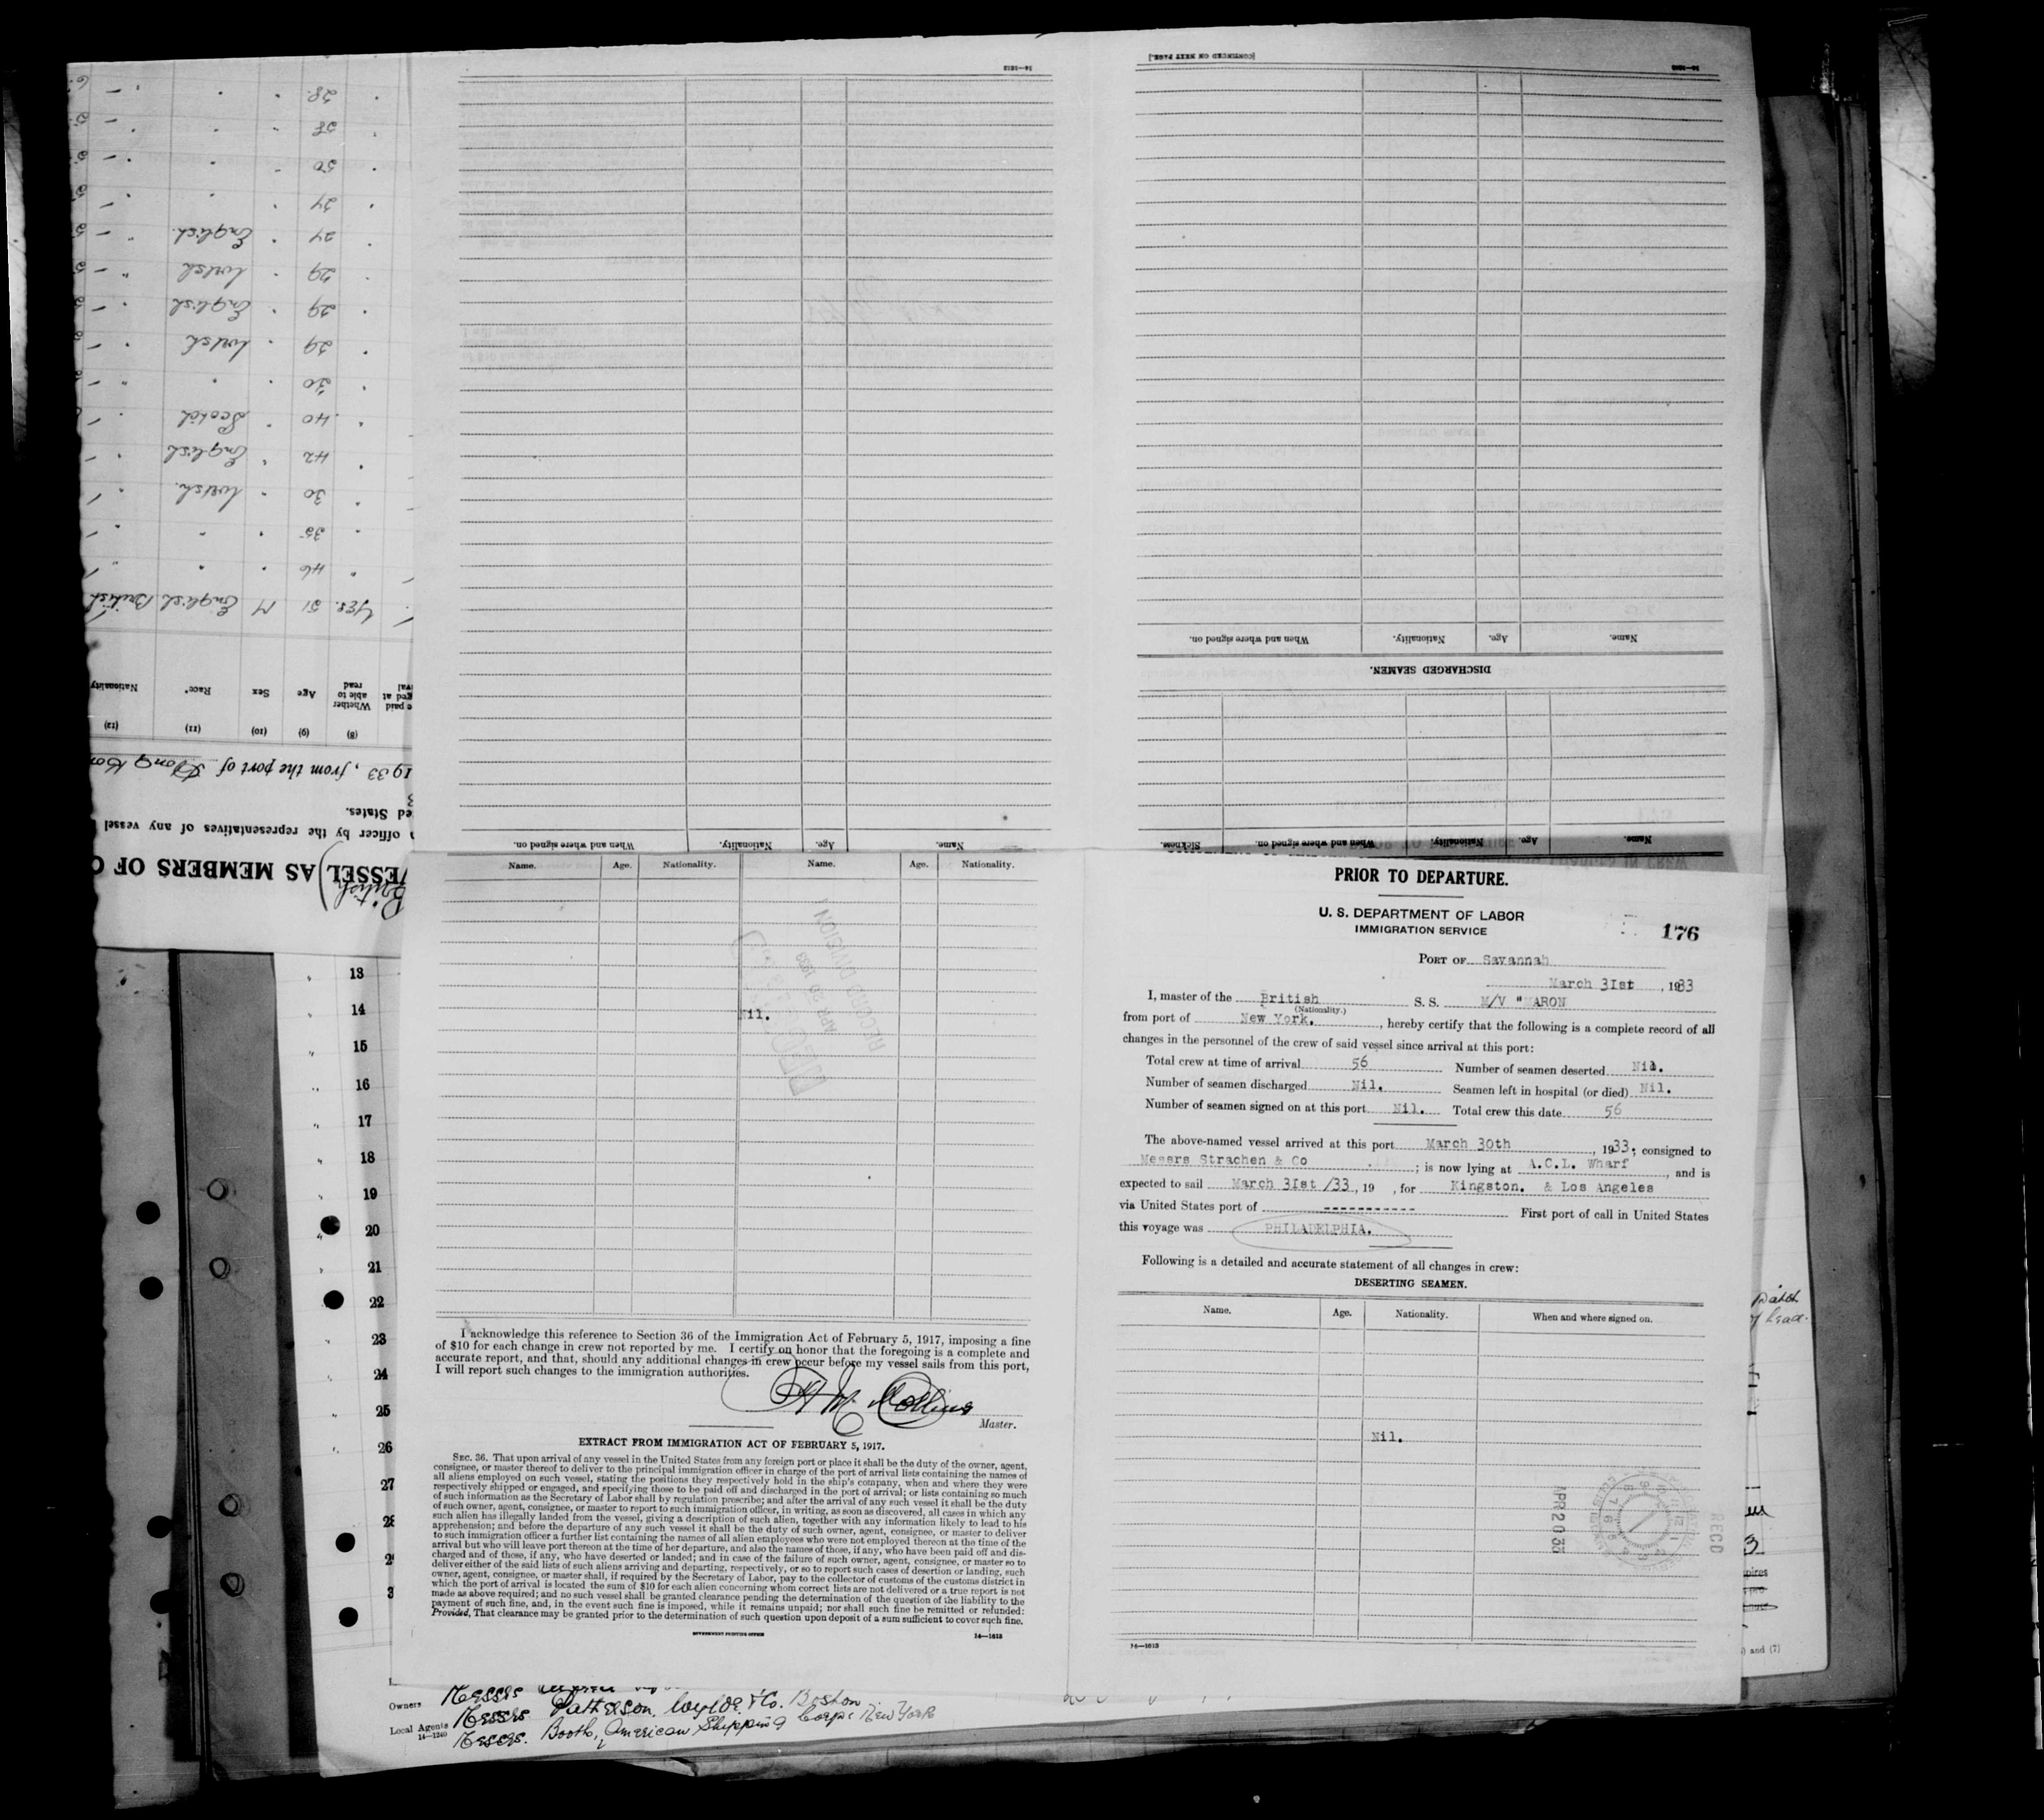 14—1613
[CONTINUED ON NEXT PAGE.]
28.
28
50
24
24 English.
29 Welsh
29 English
29 Welsh
30
40 Scotch
42 English
30 Welsh.
35
46
Yes. 51 M English British
Whether able to read Age Sex Race* Nationality
(8) (9) (10) (11) (12)
1933, from the port of
ed States.
officer by the representatives of any vessel
British)
ESSEL AS MEMBERS OF
Name. Age. Nationality. When and where signed on.
DISCHARGED SEAMEN.
Name. Age. Nationality. When and where signed on. Sickness.
Name. Age. Nationality. When and where signed on.
Name. Age. Nationality. Name. Age. Nationality.
Nil.
RECORD DIVISION
APR 20 1933
I acknowledge this reference to Section 36 of the Immigration Act of February 5, 1917, imposing a fine
of $10 for each change in crew not reported by me. I certify on honor that the foregoing is a complete and
accurate report, and that, should any additional changes in crew occur before my vessel sails from this port,
I will report such changes to the immigration authorities.
Collins
Master.
EXTRACT FROM IMMIGRATION ACT OF FEBRUARY 5, 1917.
SEC. 36. That upon arrival of any vessel in the United States from any foreign port or place it shall be the duty of the owner, agent,
consignee, or master thereof to deliver to the principal immigration officer in charge of the port of arrival lists containing the names of
all aliens employed on such vessel, stating the positions they respectively hold in the ship's company, when and where they were
respectively shipped or engaged, and specifying those to be paid off and discharged in the port of arrival; or lists containing so much
of such information as the Secretary of Labor shall by regulation prescribe; and after the arrival of any such vessel it shall be the duty
of such owner, agent, consignee, or master to report to such immigration officer, in writing, as soon as discovered, all cases in which any
such alien has illegally landed from the vessel, giving a description of such alien, together with any information likely to lead to his
apprehension; and before the departure of any such vessel it shall be the duty of such owner, agent, consignee, or master to deliver
to such immigration officer a further list containing the names of all alien employees who were not employed thereon at the time of the
arrival but who will leave port thereon at the time of her departure, and also the names of those, if any, who have been paid off and dis-
charged and of those, if any, who have deserted or landed; and in case of the failure of such owner, agent, consignee, or master so to
deliver either of the said lists of such aliens arriving and departing, respectively, or so to report such cases of desertion or landing, such
owner, agent, consignee, or master shall, if required by the Secretary of Labor, pay to the collector of customs of the customs district in
which the port of arrival is located the sum of $10 for each alien concerning whom correct lists are not delivered or a true report is not
made as above required; and no such vessel shall be granted clearance pending the determination of the question of the liability to the
payment of such fine, and, in the event such fine is imposed, while it remains unpaid; nor shall such fine be remitted or refunded:
Provided, That clearance may be granted prior to the determination of such question upon deposit of a sum sufficient to cover such fine.
GOVERNMENT PRINTING OFFICE 14—1613
PRIOR TO DEPARTURE.
U. S. DEPARTMENT OF LABOR
IMMIGRATION SERVICE
176
PORT OF Savannah
March 31st, 1933
I, master of the British S. S. M/V "MARON
(Nationality.)
from port of New York., hereby certify that the following is a complete record of all
changes in the personnel of the crew of said vessel since arrival at this port:
Total crew at time of arrival 56 Number of seamen deserted Nil.
Number of seamen discharged Nil. Seamen left in hospital (or died) Nil.
Number of seamen signed on at this port Nil. Total crew this date 56
The above-named vessel arrived at this port March 30th, 1933; consigned to
Messrs Strachen & Co; is now lying at A.C.L. Wharf, and is
expected to sail March 31st /33, 19 , for Kingston. & Los Angeles
via United States port of ------------ First port of call in United States
this voyage was PHILADELPHIA.
Following is a detailed and accurate statement of all changes in crew:
DESERTING SEAMEN.
Name. Age. Nationality. When and where signed on.
Nil.
APR 20 33
RECD
14—1613
13
14
15
16
17
18
19
20
21
22
23
24
25
26
27
28
Owners Messrs
Local Agents Messrs Patterson, Wylde & Co. Boston
14—1240
Messrs. Booth, American Shipping Corp: New York
) and (7)